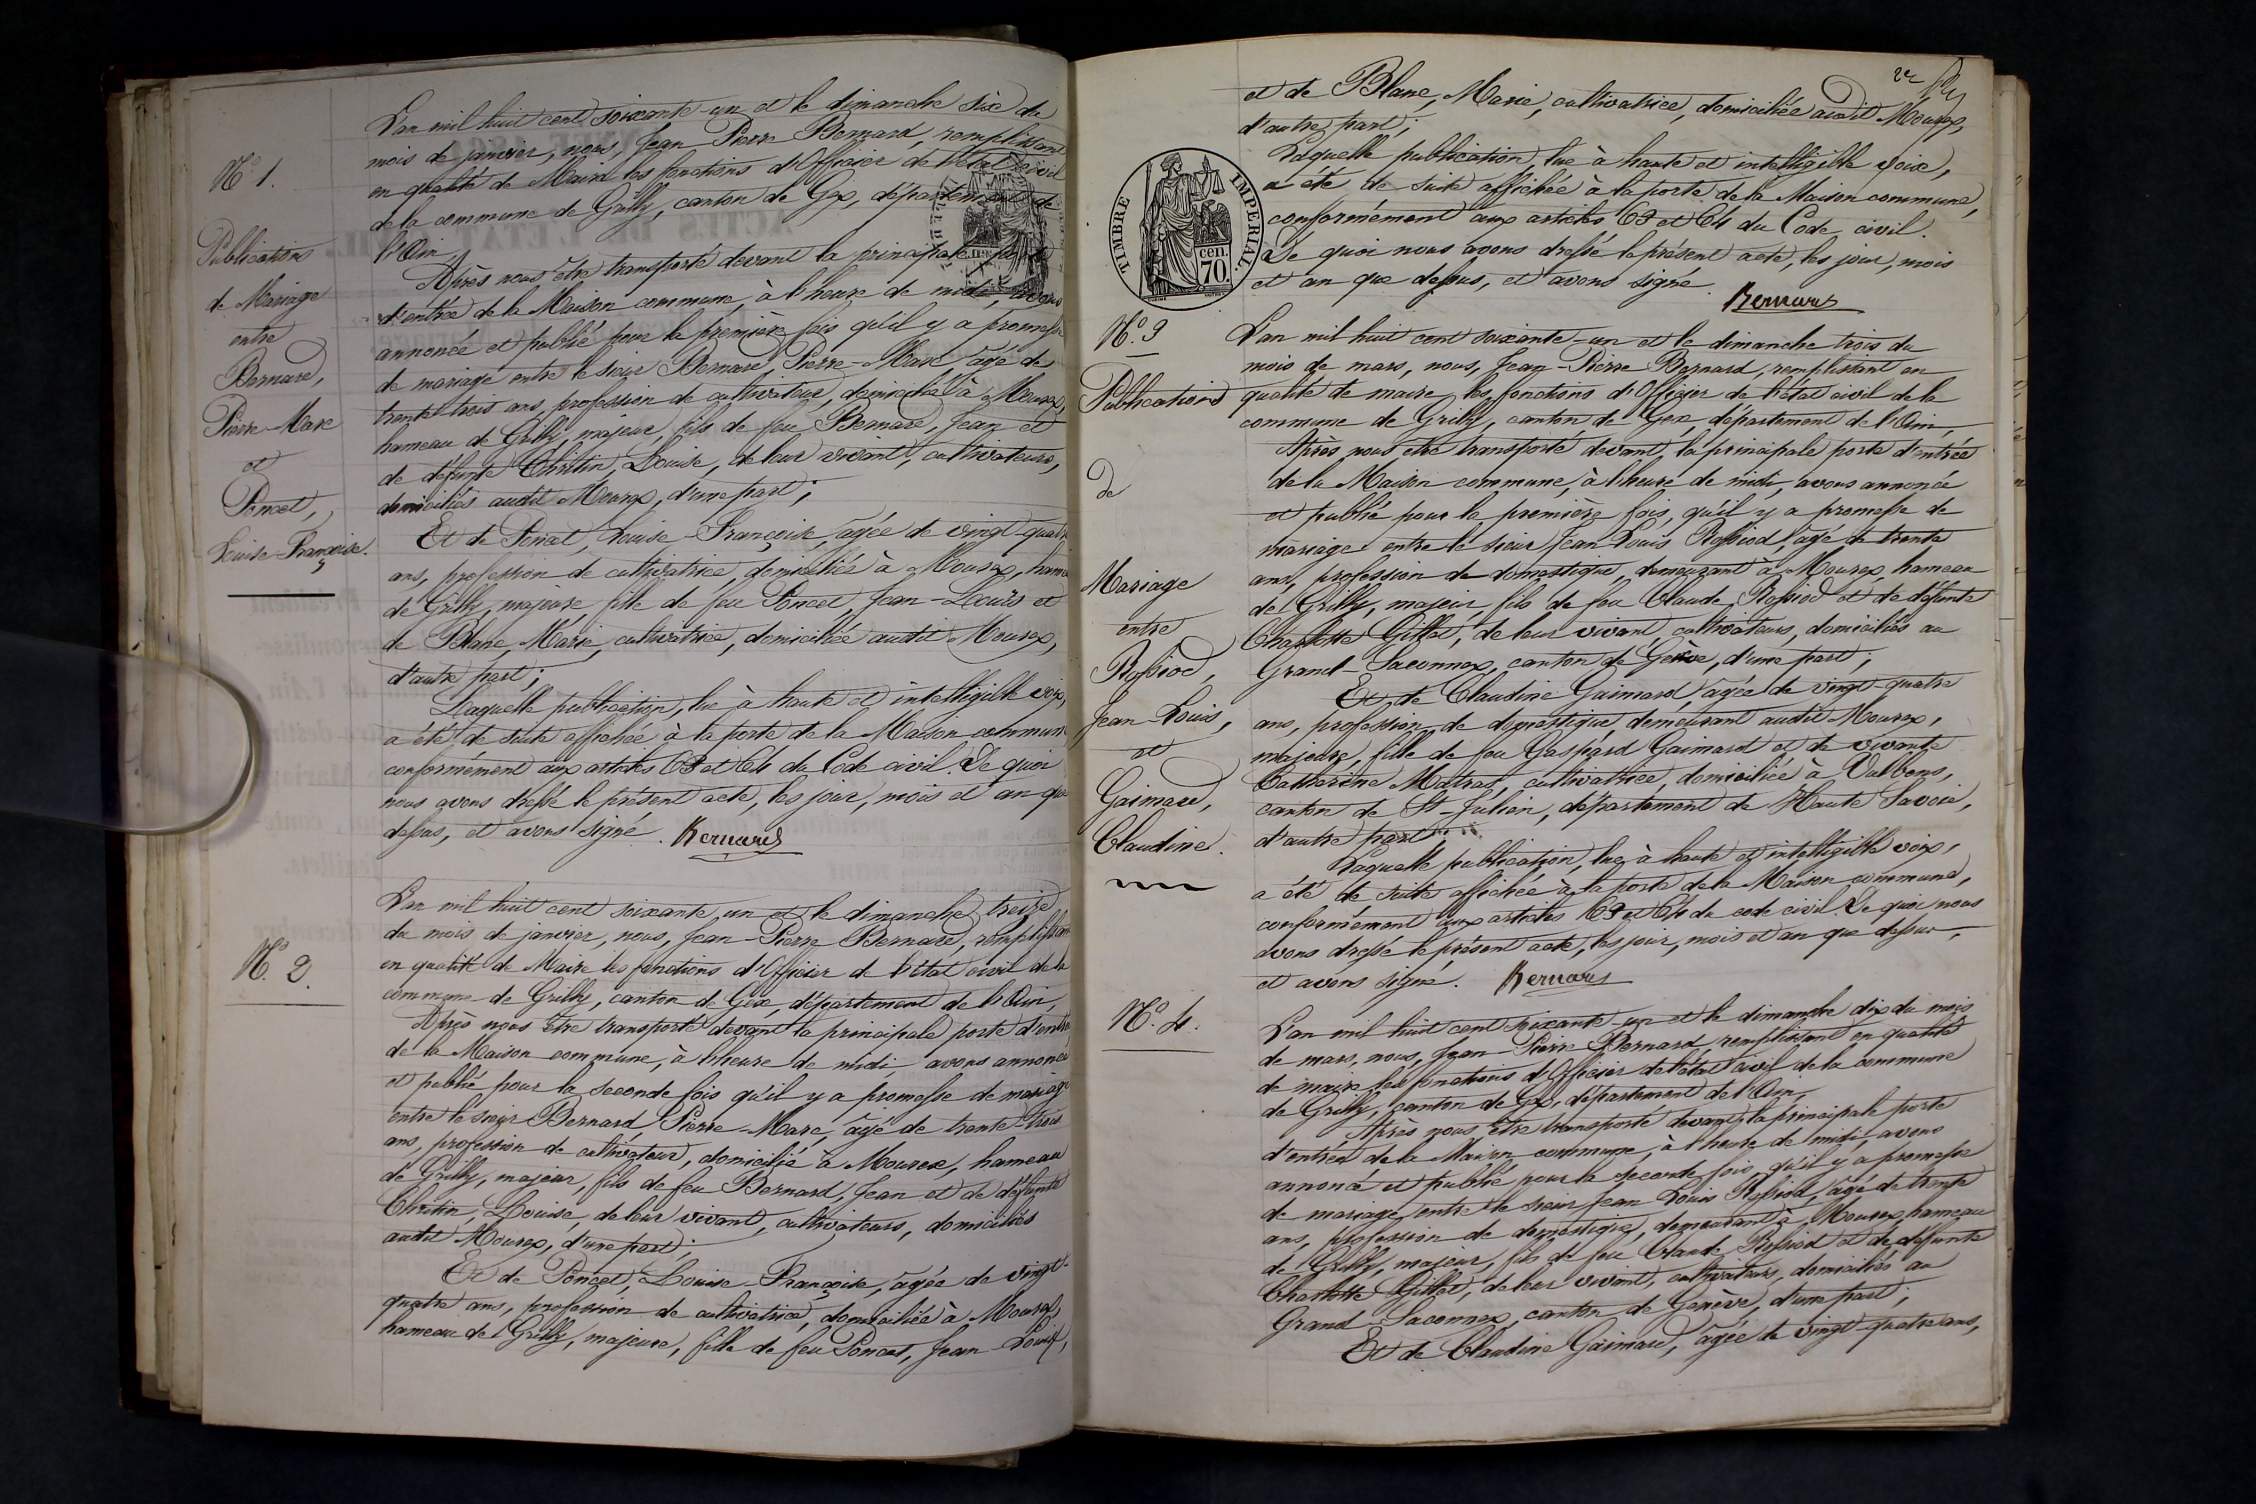 N° 1.
Publications
de Mariage
entre
Bernard,
Pierre-Marc
et
Poncet,
Louise-Françoise.
L'an mil huit cent soixante-un et le dimanche six du
mois de janvier, nous, Jean-Pierre Bernard, remplissant
en qualité de Maire les fonctions d'Officier de l'état civil
de la commune de Grilly, canton de Gex, département de
l'Ain,
Après nous être transporté devant la principale porte
d'entrée de la Maison commune, à l'heure de midi, avons
annoncé et publié pour la première fois qu'il y a promesse
de mariage entre le sieur Bernard, Pierre-Marc âgé de
trente-trois ans, profession de cultivateur, domicilié à Mourex,
hameau de Grilly, majeur, fils de feu Bernard, Jean et
de défunte Chritin, Louise, de leur vivant, cultivateurs,
domiciliés audit Mourex, d'une part;
Et de Poncet, Louise-Françoise, âgée de vingt-quatre
ans, profession de cultivatrice, domiciliée à Mourex, hameau
de Grilly, majeure, fille de feu Poncet, Jean-Louis et
de Blanc, Marie, cultivatrice, domiciliée audit Mourex,
d'autre part;
Laquelle publication, lue à haute et intelligible voix,
a été de suite affichée à la porte de la Maison commune
conformément aux articles 63 et 64 du Code civil. De quoi
nous avons dressé le présent acte, les jour, mois et an que
dessus, et avons signé. Bernard
N°. 2.
L'an mil huit cent soixante-un et le dimanche treize
du mois de janvier, nous, Jean-Pierre Bernard, remplissant
en qualité de Maire les fonctions d'Officier de l'état civil de la
commune de Grilly, canton de Gex, département de l'Ain,
Après nous être transporté devant la principale porte d'entrée
de la Maison commune, à l'heure de midi avons annoncé
et publié pour la seconde fois qu'il y a promesse de mariage
entre le sieur Bernard Pierre-Marc, âgé de trente-trois
ans, profession de cultivateur, domicilié à Mourex, hameau
de Grilly, majeur, fils de feu Bernard, Jean et de défunte
Chritin, Louise, de leur vivant, cultivateurs, domiciliés
audit Mourex, d'une part;
Et de Poncet, Louise-Françoise, âgée de vingt-
quatre ans, profession de cultivatrice, domiciliée à Mourex,
hameau de Grilly, majeure, fille de feu Poncet, Jean-Louis,
et de Blanc, Marie, cultivatrice, domiciliée audit Mourex,
d'autre part;
Laquelle publication, lue à haute et intelligible voix,
a été de suite affichée à la porte de la Maison commune,
conformément aux articles 63 et 64 du Code civil.
De quoi nous avons dressé le présent acte, les jour, mois
et an que dessus, et avons signé.
Bernard
TIMBRE IMPERIAL.
cen.
70.
N°. 3
Publications
de
Mariage
entre
Rossiod,
Jean-Louis,
et
Gaimard,
Claudine.
L'an mil huit cent soixante-un et le dimanche trois du
mois de mars, nous, Jean-Pierre Bernard, remplissant en
qualité de maire les fonctions d'Officier de l'état civil de la
commune de Grilly, canton de Gex, département de l'Ain,
Après nous être transporté devant la principale porte d'entrée
de la Maison commune, à l'heure de midi, avons annoncé
et publié pour la première fois, qu'il y a promesse de
mariage entre le sieur Jean-Louis Rossiod, âgé de trente
ans, profession de domestique, demeurant à Mourex, hameau
de Grilly, majeur, fils de feu Claude Rossiod et de défunte
Charlotte Gillet, de leur vivant, cultivateurs, domiciliés au
Grand-Saconnex, canton de Genève, d'une part;
Et de Claudine Gaimard, âgée de vingt-quatre
ans, profession de domestique, demeurant audit Mourex,
majeure, fille de feu Gaspard Gaimard et de vivante
Catherine Matral, cultivatrice, domiciliée à Valbens,
canton de St-Julien, département de Haute Savoie,
d'autre part;
Laquelle publication, lue à haute et intelligible voix,
a été de suite affichée à la porte de la Maison commune,
conformément aux articles 63 et 64 du code civil. De quoi nous
avons dressé le présent acte, les jour, mois et an que dessus,
et avons signé. Bernard
N°. 4.
L'an mil huit cent soixante-un et le dimanche dix du mois
de mars, nous, Jean-Pierre Bernard, remplissant en qualité
de maire les fonctions d'Officier de l'état civil de la commune
de Grilly, canton de Gex, département de l'Ain,
Après nous être transporté devant la principale porte
d'entrée de la Maison commune, à l'heure de midi, avons
annoncé et publié pour la seconde fois, qu'il y a promesse
de mariage entre le sieur Jean Louis Rossiod, âgé de trente
ans, profession de domestique, demeurant à Mourex hameau
de Grilly, majeur, fils de feu Claude Rossiod et de défunte
Charlotte Gillet, de leur vivant, cultivateurs, domiciliés au
Grand-Saconnex, canton de Genève, d'une part;
Et de Claudine Gaimard, âgée de vingt-quatre ans,